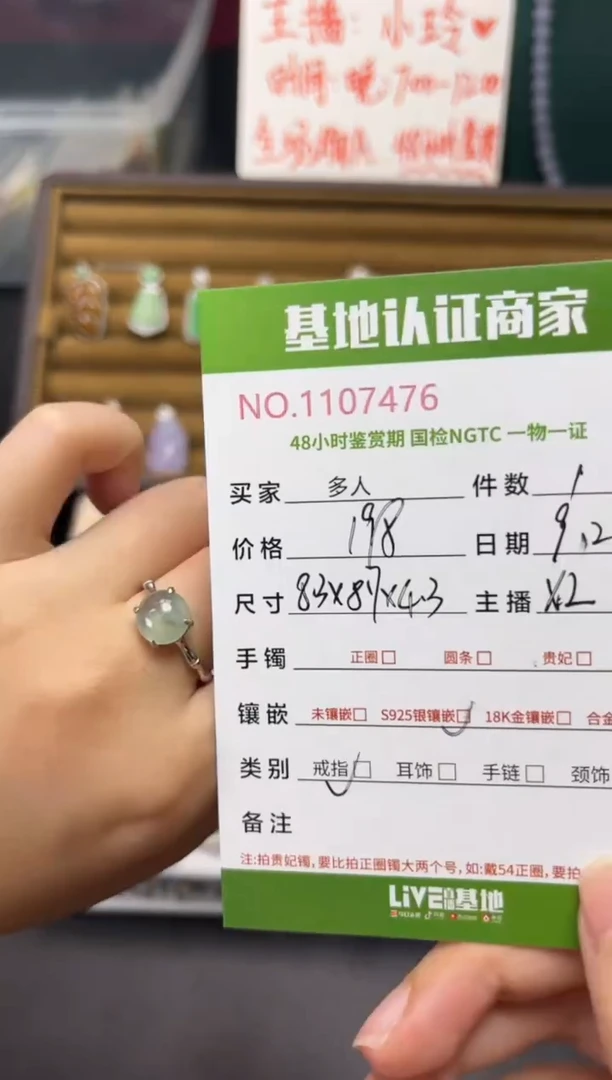 主播：小玲❤
时间 晚 7:00-12:00
基地认证商家
NO.1107476
48小时鉴赏期 国检NGTC 一物一证
买家 多人 件数 1
价格 198 日期 9.2
尺寸 83x87x4.3 主播 X2
手镯 正圈□ 圆条□ 贵妃□
镶嵌 未镶嵌□ S925银镶嵌□ 18K金镶嵌□ 合金
类别 戒指□ 耳饰□ 手链□ 颈饰
备注
注:拍贵妃镯,要比拍正圈镯大两个号,如:戴54正圈,要拍
LiVE 基地